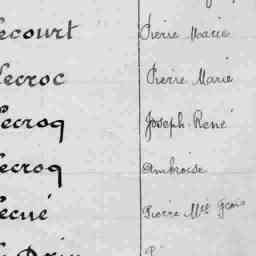 ecourt Pierre Marie
ecroc Pierre Marie
ecroq Joseph René
ecroq Ambroise
ecué Pierre Mie Gçois